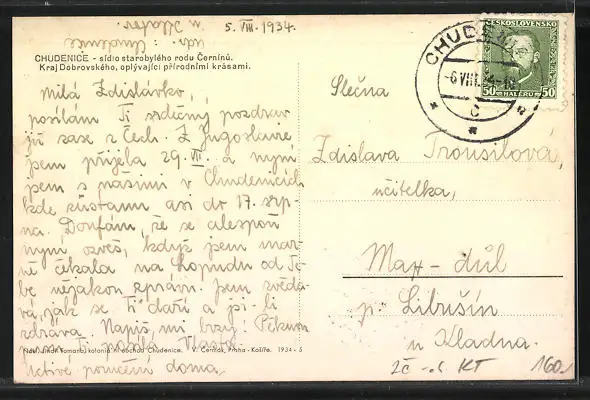 5. VIII. 1934.
Chudenice
CHUDENICE - sídlo starobylého rodu Černínů.
Kraj Dobrovského, oplývající přírodními krásami.
Milá Zdislávko,
posílám Ti srdečný pozdrav
již zase z Čech. Z Jugoslavie
jsem přijela 29. VII. a nyní
jsem s našimi v Chudenicích,
kde zůstanu asi do 17. srp-
na. Doufám, že se alespoň
nyní ozveš, když jsem mar-
ně čekala na Lopudu od Te-
be nějakou zprávu. Jsem zvěda-
vá, jak se Ti daří a jsi-li
zdráva. Napiš mi brzy! Pěkný
Ti posílá Vlasta.
domа,
V. Černák, Praha - Košíře. 1934 - 5
ČESKOSLOVENSKO
50 HALÉŘŮ 50
CHUDENICE
-6.VIII.34-
C
Slečna
Zdislava Trousilová,
učitelka,
Max-důl
p. Libušín
u Kladna.
KT
160.-